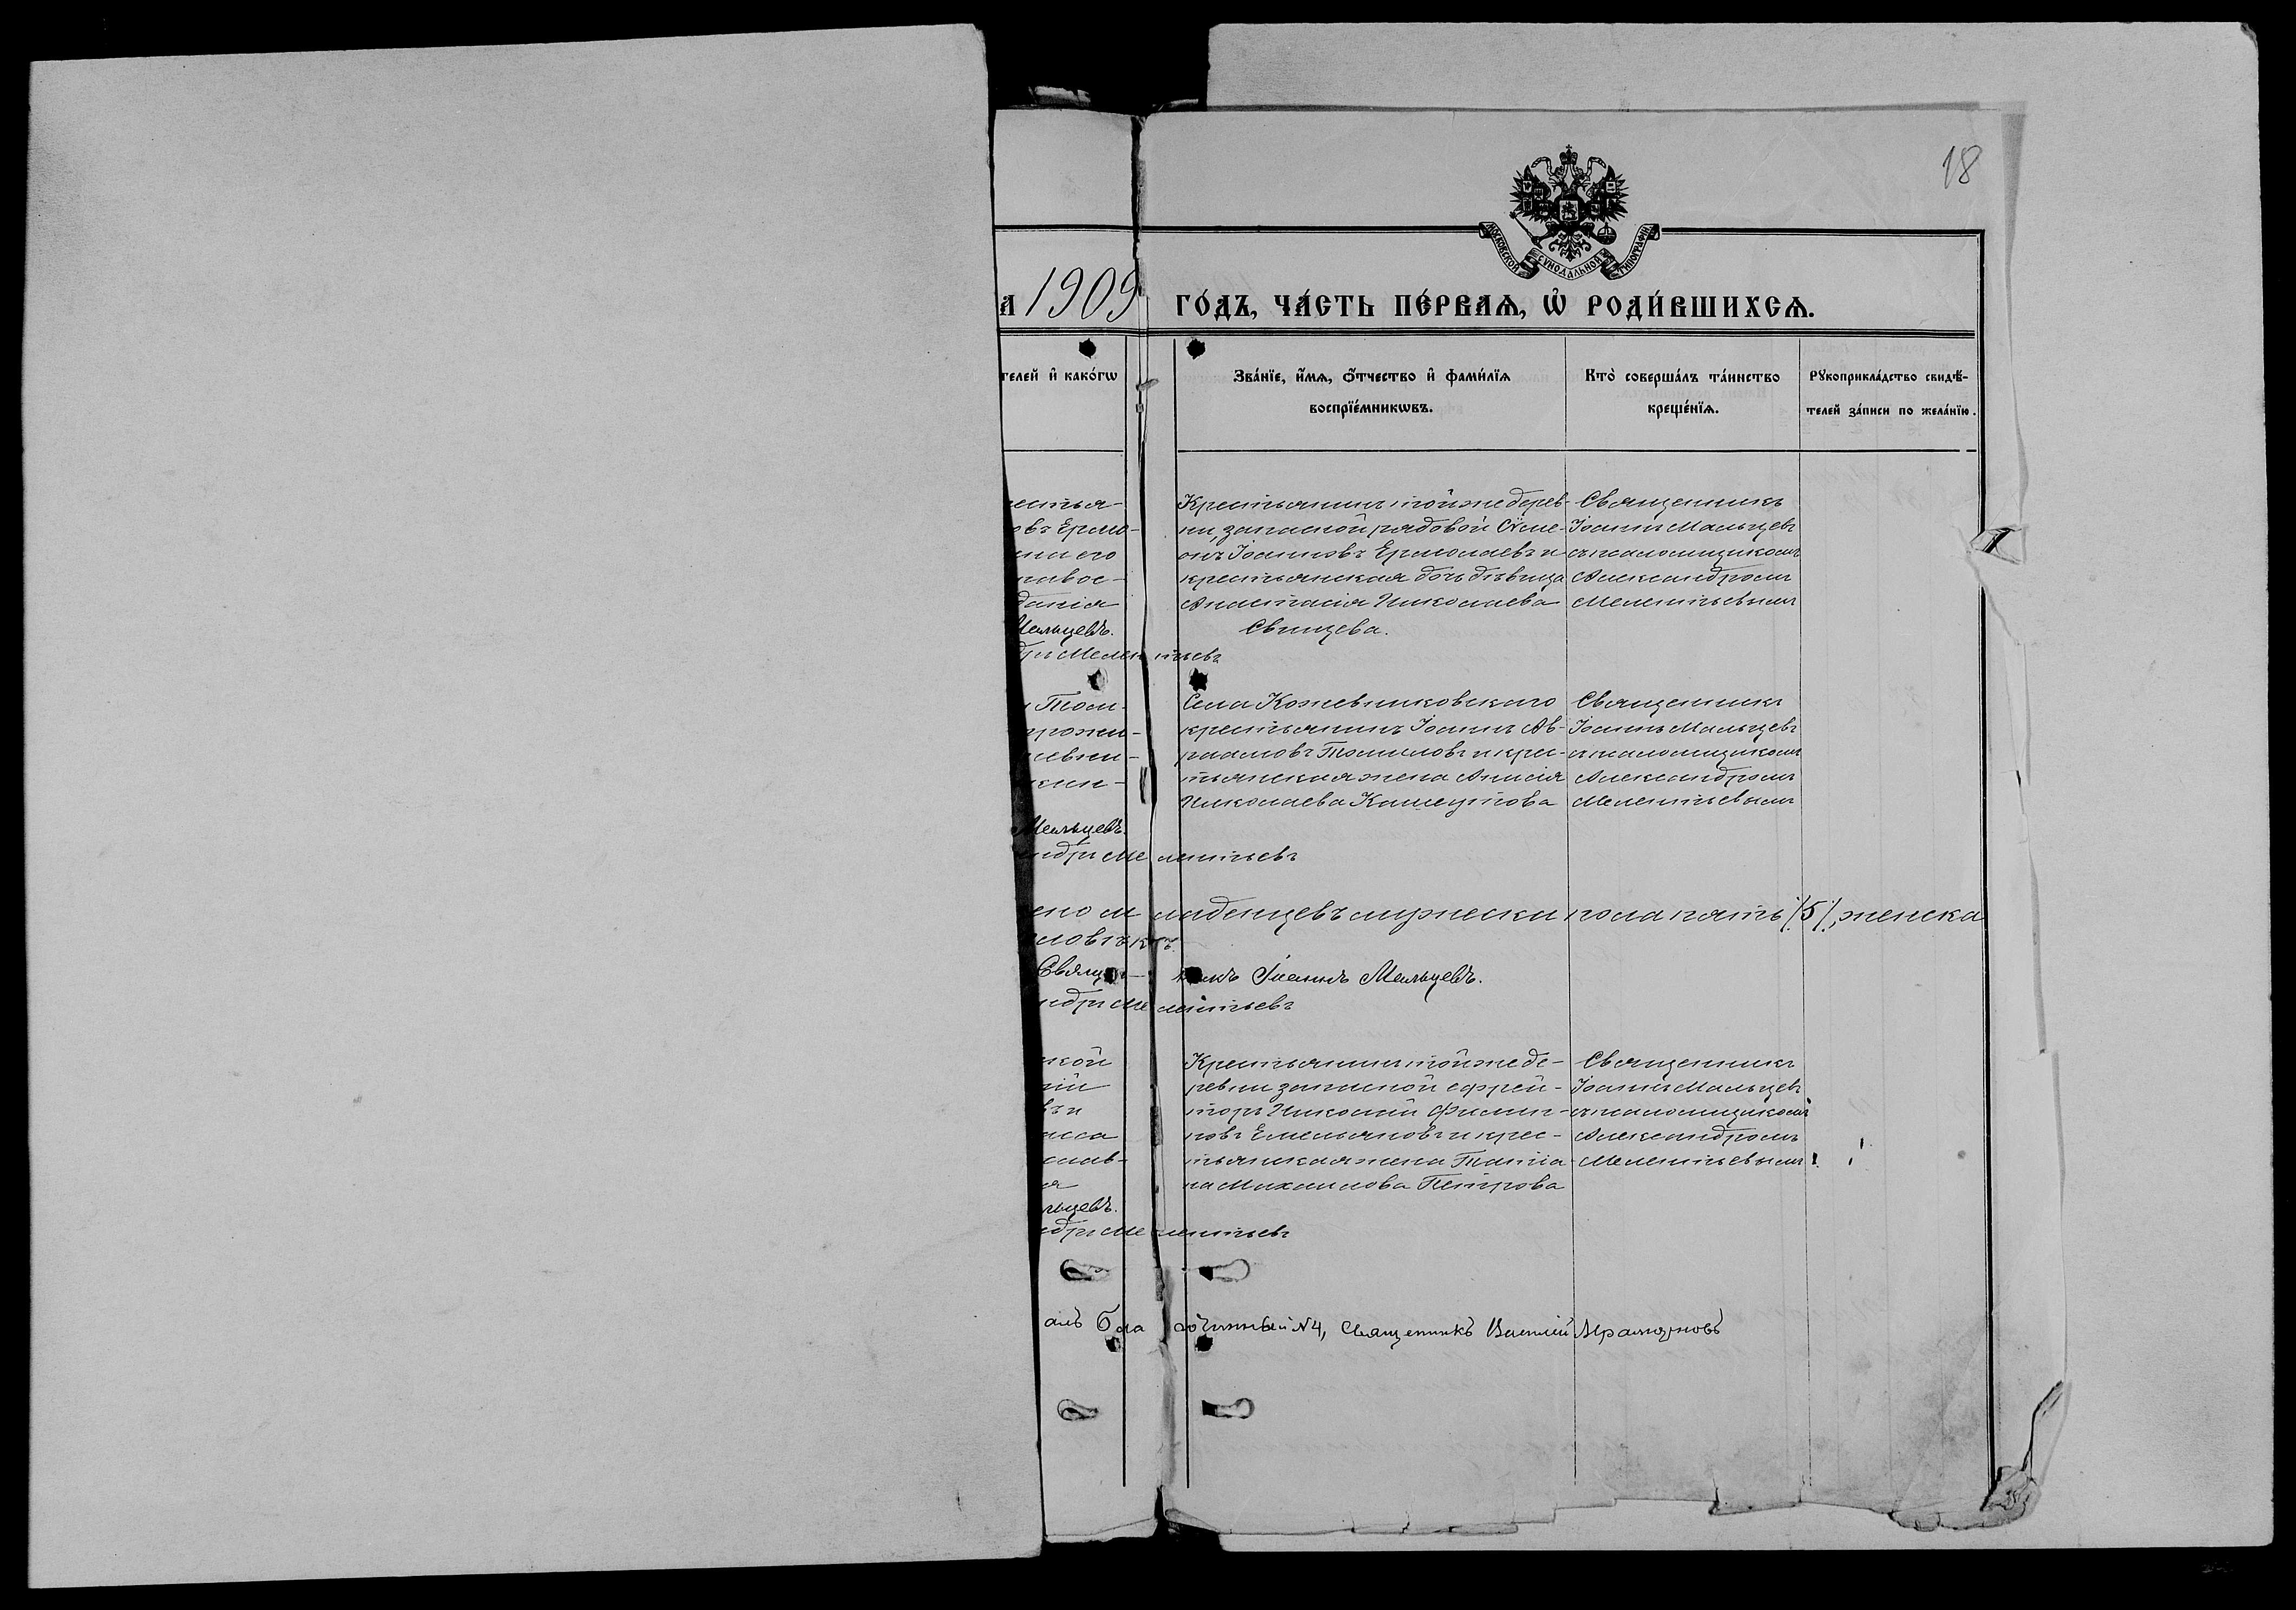 18
МОСКОВСКОЙ СѴНОДАЛЬНОЙ ТИПОГРАФІИ
А 1909 ГО́ДЪ, ЧА́СТЬ ПЕ́РВАѦ, Ѡ҆ РОДИ́ВШИХСѦ.
телей и҆ како́гѡ
Зва́нїе, и҆́мѧ, ѻ҆́тчество и҆ фами́лїѧ
воспрїе́мникѡвъ.
Кто̀ соверша́лъ та́инство
креще́нїѧ.
Рꙋкоприкла́дство свидѣ́-
телей за́писи по жела́нїю.
рестья-
овъ Ермо-
дания
Мальцевъ.
дръ Мелентьевъ
Крестьянинъ той же дерев-
ни, запасной рядовой Сѵме-
онъ Іоанновъ Ермолаевъ и
крестьянская дочь дѣвица
Анастасія Николаева
Свинцева.
Священникъ
Іоаннъ Мальцевъ
съ псаломщикомъ
Александромъ
Мелентьевымъ
Мальцевъ.
ндръ Мелентьевъ
Села Кожевниковскаго
крестьянинъ Іоаннъ Ав-
раамовъ Томиловъ и крес-
тьянская жена Анисія
Николаева Кашеутова
Священникъ
Іоаннъ Мальцевъ
съ псаломщикомъ
Александромъ
Мелентьевымъ
ено младенцевъ мужеска пола пять /5/, женска
ловѣкъ
Священникъ Іоаннъ Мальцевъ.
ндръ Мелентьевъ
кой
льцевъ.
ндръ Мелентьевъ
Крестьянинъ той же де-
ревни запасной ефрей-
торъ Николай Филип-
повъ Емельяновъ и крес-
тьянская жена Татіа-
на Михаилова Петрова
Священникъ
Іоаннъ Мальцевъ
съ псаломщикомъ
Александромъ
Мелентьевымъ
алъ Благочинный №4, Священникъ Василій